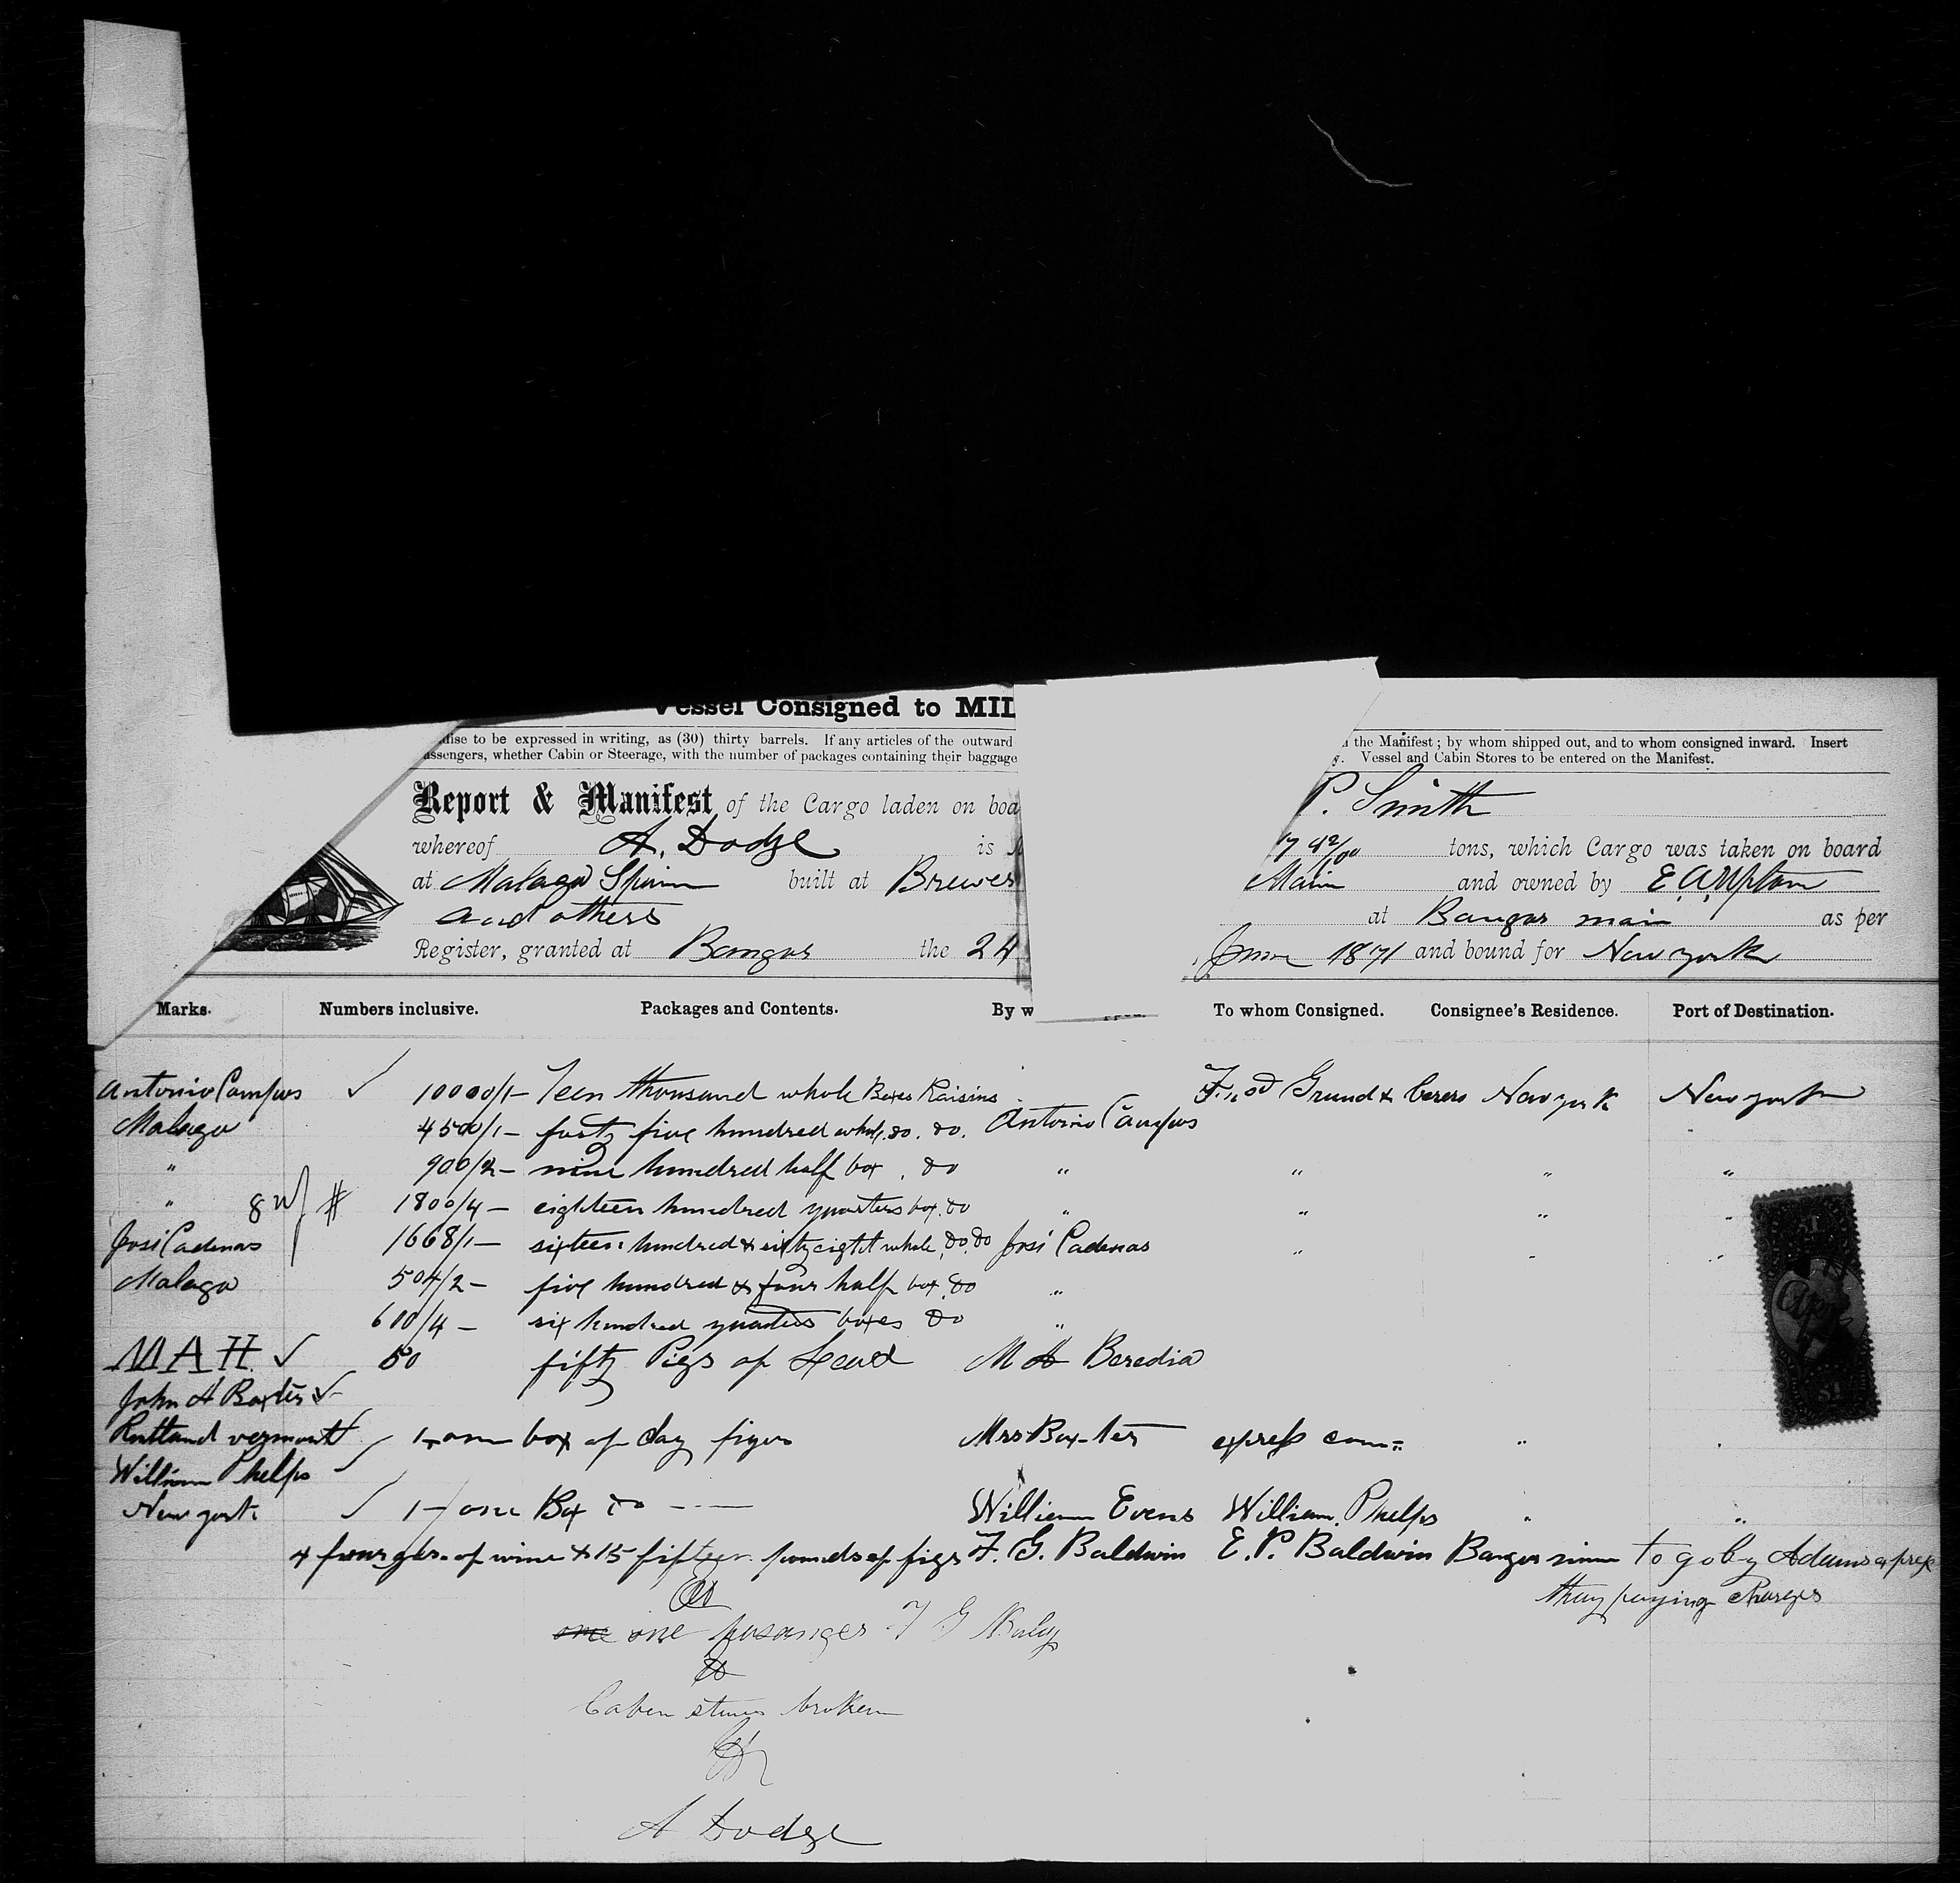 Vessel Consigned to MIL
dise to be expressed in writing, as (30) thirty barrels. If any articles of the outward
the Manifest; by whom shipped out, and to whom consigned inward. Insert
assengers, whether Cabin or Steerage, with the number of packages containing their baggage
s. Vessel and Cabin Stores to be entered on the Manifest.
Report & Manifest of the Cargo laden on boa P. Smith
whereof A. Dodge is 42/100 tons, which Cargo was taken on board
at Malaga Spain built at Brewer Main and owned by E. A. Upton
and others at Bangor main as per
Register, granted at Bangor the 24 June 1871 and bound for New york
Marks. Numbers inclusive. Packages and Contents. By w To whom Consigned. Consignee's Residence. Port of Destination.
Antonio Campos ✓ 10000/1 – Teen thousand whole Boxes Raisins New york New york
Malaga 4500/1 – forty five hundred whole do. do. Antonio Campos
" 900/2 – nine hundred half box. do " " " "
" 1800/4 – eighteen hundred quarters box. do " " " "
José Cadenas 1668/1 – sixteen hundred & sixty eight whole, do. do José Cadenas " " "
Malaga 504/2 – five hundred & four half box do "
600/4 – six hundred quarters boxes do "
M A H. ✓ 50 fifty Pigs of Lead M A Beredia
John A Baxter ✓
Rutland vermont ✓ 1 – one box of figs Mrs Baxter express com "
William Phelps ✓
New york ✓ 1 – one Box do William Evens William Phelps " "
4 four of wine & 15 fifteen pounds of figs F. G. Baldwin E. P. Baldwin Bangor to go by Adams express
thay paying charges
one one pasanger F G
Caben stores broken
A Dodge